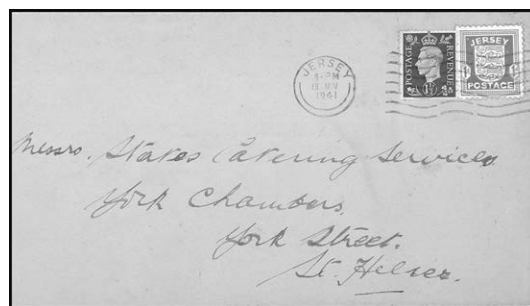 JERSEY
1941
POSTAGE REVENUE
JERSEY
POSTAGE
Messrs. Stakes Catering Services
York Chambers.
York Street.
St. Helier.